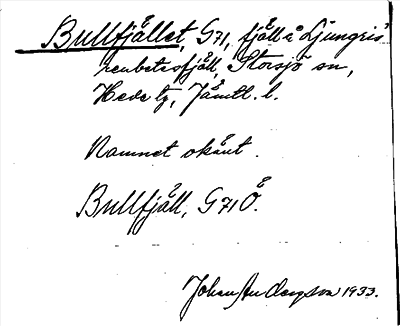 Bullfjället, G 71, fjäll å Ljungris
renbetesfjäll, Storsjö sn,
Hede tg, Jämtl. l.
Namnet okänt.
Bullfjäll, G 71 Ö.
Johan Andersson 1933.